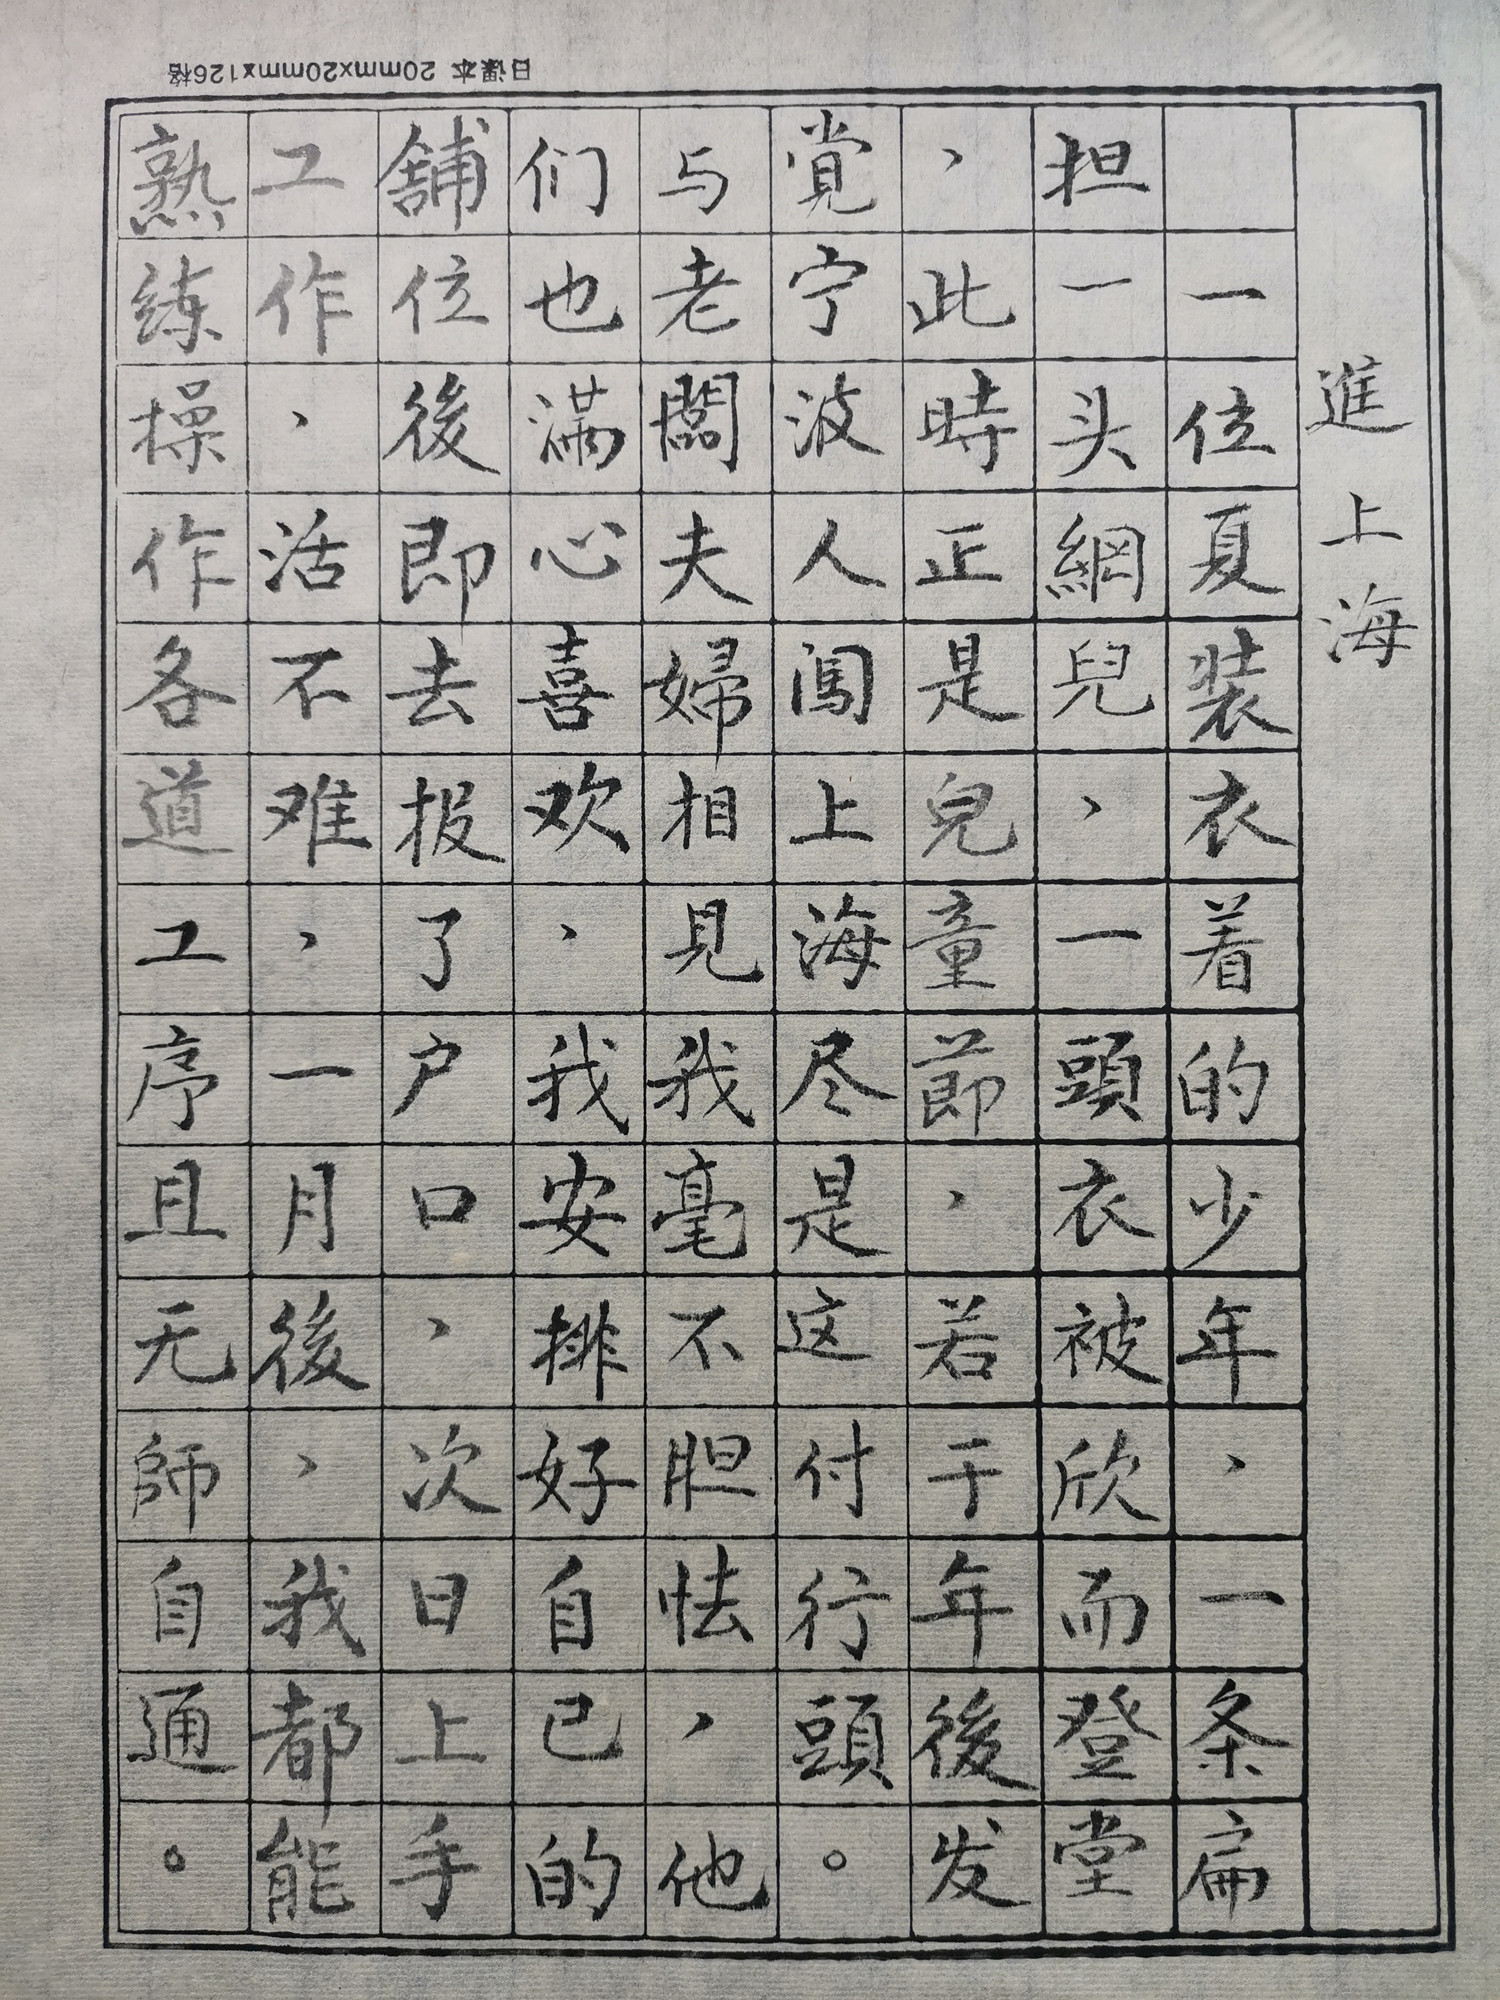 日课本 20mmx20mmx126格
進上海
一位夏装衣着的少年,一条扁
担一头網兒,一頭衣被欣而登堂
,此時正是兒童節,若干年後发
覚宁波人闯上海尽是这付行頭。
与老闆夫婦相見我毫不胆怯,他
们也满心喜欢,我安排好自己的
舖位後即去报了户口,次日上手
工作,活不难,一月後,我都能
熟练操作各道工序且无師自通。